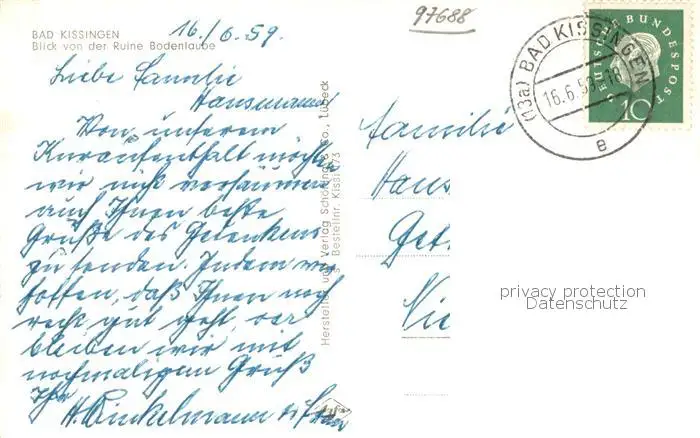 97688
BAD KISSINGEN
Blick von der Ruine Bodenlaube
16./6.59.
Liebe Familie
Hansmann
Von unserem
Kuraufenthalt möchten
wir nicht versäumen
auch Ihnen beste
Grüße des Gedenkens
zu senden. Indem wir
hoffen, daß Ihnen noch
recht gut geht, ver
bleiben wir mit
nochmaligem Gruß
Ihr
H. Winkelmann u. Frau
Herstellung und Verlag Schöning & Co., Lübeck
Bestellnr. Kissi
Familie
Hans
Get
Nie
(13a) BAD KISSINGEN
16.6.59
e
DEUTSCHE BUNDESPOST
10
privacy protection
Datenschutz